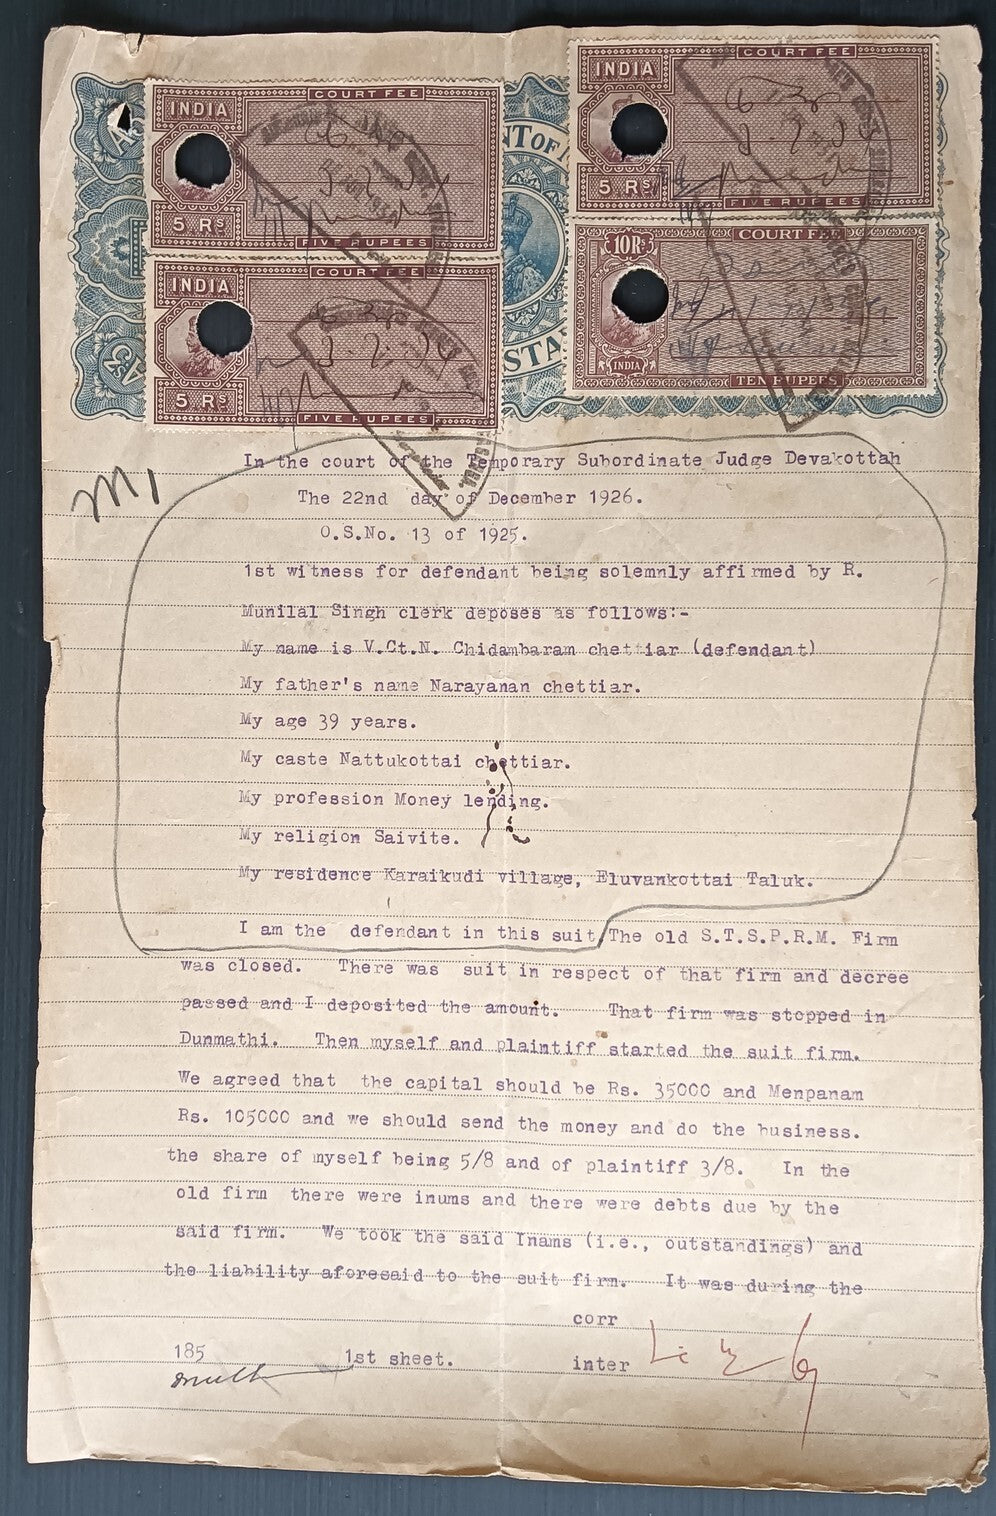 INDIA
COURT FEE
5 RS
FIVE RUPEES
INDIA
COURT FEE
5 RS
FIVE RUPEES
INDIA
COURT FEE
5 RS
FIVE RUPEES
10 Rs
COURT FEE
INDIA
TEN RUPEES
NT OF
STA
In the court of the Temporary Subordinate Judge Devakottah
The 22nd day of December 1926.
O.S.No. 13 of 1925.
1st witness for defendant being solemnly affirmed by R.
Munilal Singh clerk deposes as follows:-
My name is V.Ct.N. Chidambaram chettiar (defendant)
My father's name Narayanan chettiar.
My age 39 years.
My caste Nattukottai chettiar.
My profession Money lending.
My religion Saivite.
My residence Karaikudi village, Eluvankottai Taluk.
I am the defendant in this suit/The old S.T.S.P.R.M. Firm
was closed. There was suit in respect of that firm and decree
passed and I deposited the amount. That firm was stopped in
Dunmathi. Then myself and plaintiff started the suit firm.
We agreed that the capital should be Rs. 35000 and Menpanam
Rs. 105000 and we should send the money and do the business.
the share of myself being 5/8 and of plaintiff 3/8. In the
old firm there were inums and there were debts due by the
said firm. We took the said Inams (i.e., outstandings) and
the liability aforesaid to the suit firm. It was during the
corr
185 1st sheet. inter